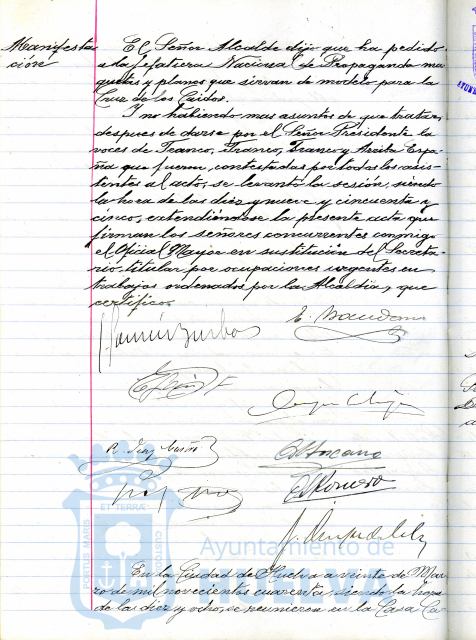 Manifesta
ción
El Señor Alcalde dijo que ha pedido
a la Jefatura Nacional de Propaganda ma
quetas y planos que sirvan de modelo para la
Cruz de los Caidos.
Y no habiendo mas asuntos de que tratar,
despues de darse por el Señor Presidente las
voces de Franco, Franco, Franco y Arriba Espa
ña que fueron contestadas por todos los asis-
tentes al acto, se levantó la sesión, siendo
la hora de las diez y nueve y cincuenta y
cinco, extendiéndose la presente acta que
firman los señores concurrentes conmigo
el Oficial Mayor en sustitución del Secreta-
rio titular por ocupaciones urgentes en
trabajos ordenados por la Alcaldia, que
certifico.
PORTUS MARIS
ET TERRÆ
CUSTODIA
Ayuntamiento de
HUELVA
En la Ciudad de Huelva a veinte de Mar
zo de mil novecientos cuarenta, siendo la hora
de las diez y ocho, se reunieron en la Casa Ca